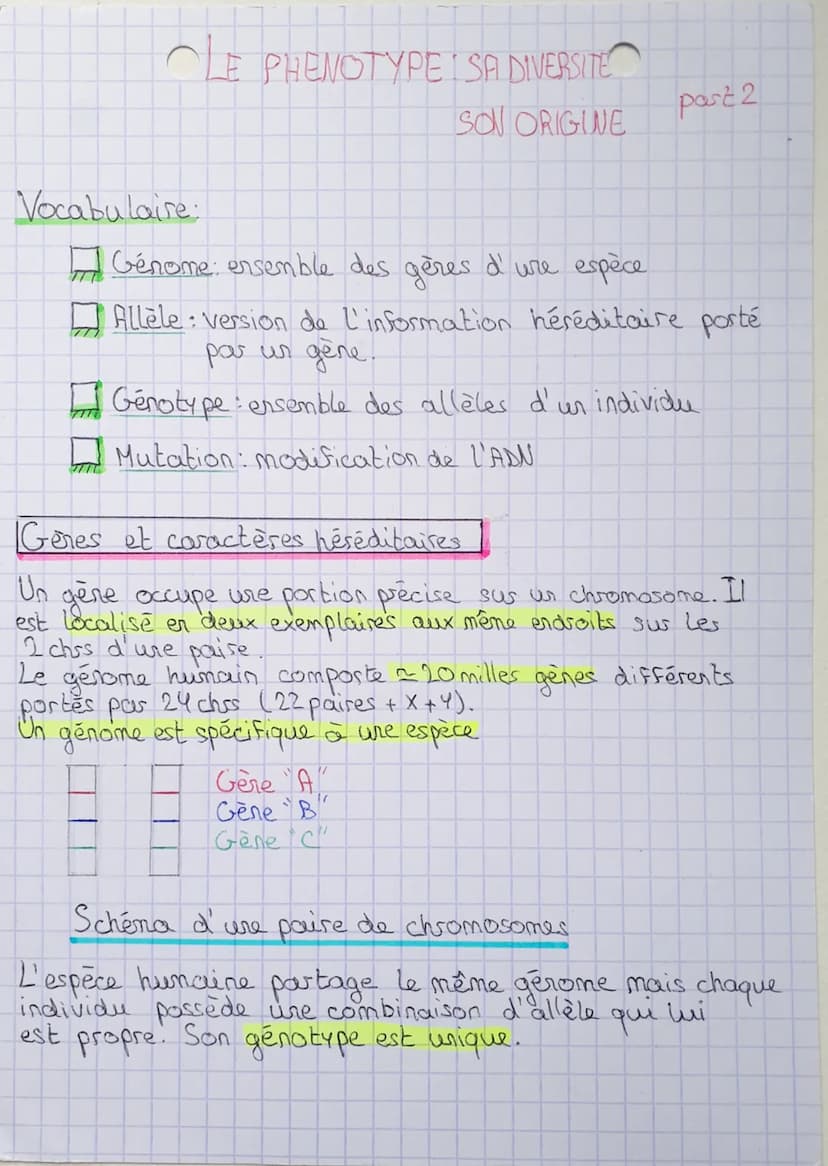 LE PHENOTYPE : SA DIVERSITE
SON ORIGINE
part 2
Vocabulaire :
Génome : ensemble des gènes d'une espèce
Allèle : version de l'information héréditaire porté
par un gène.
Génotype : ensemble des allèles d'un individu
Mutation : modification de l'ADN
Gènes et caractères héréditaires
Un gène occupe une portion précise sur un chromosome. Il
est localisé en deux exemplaires aux même endroits sur les
2 chrs d'une paire.
Le génome humain comporte ≃ 20 milles gènes différents
portés par 24 chrs (22 paires + X + Y).
Un génome est spécifique à une espèce
Gène "A"
Gène "B"
Gène "C"
Schéma d'une paire de chromosomes
L'espèce humaine partage le même génome mais chaque
individu possède une combinaison d'allèle qui lui
est propre. Son génotype est unique.